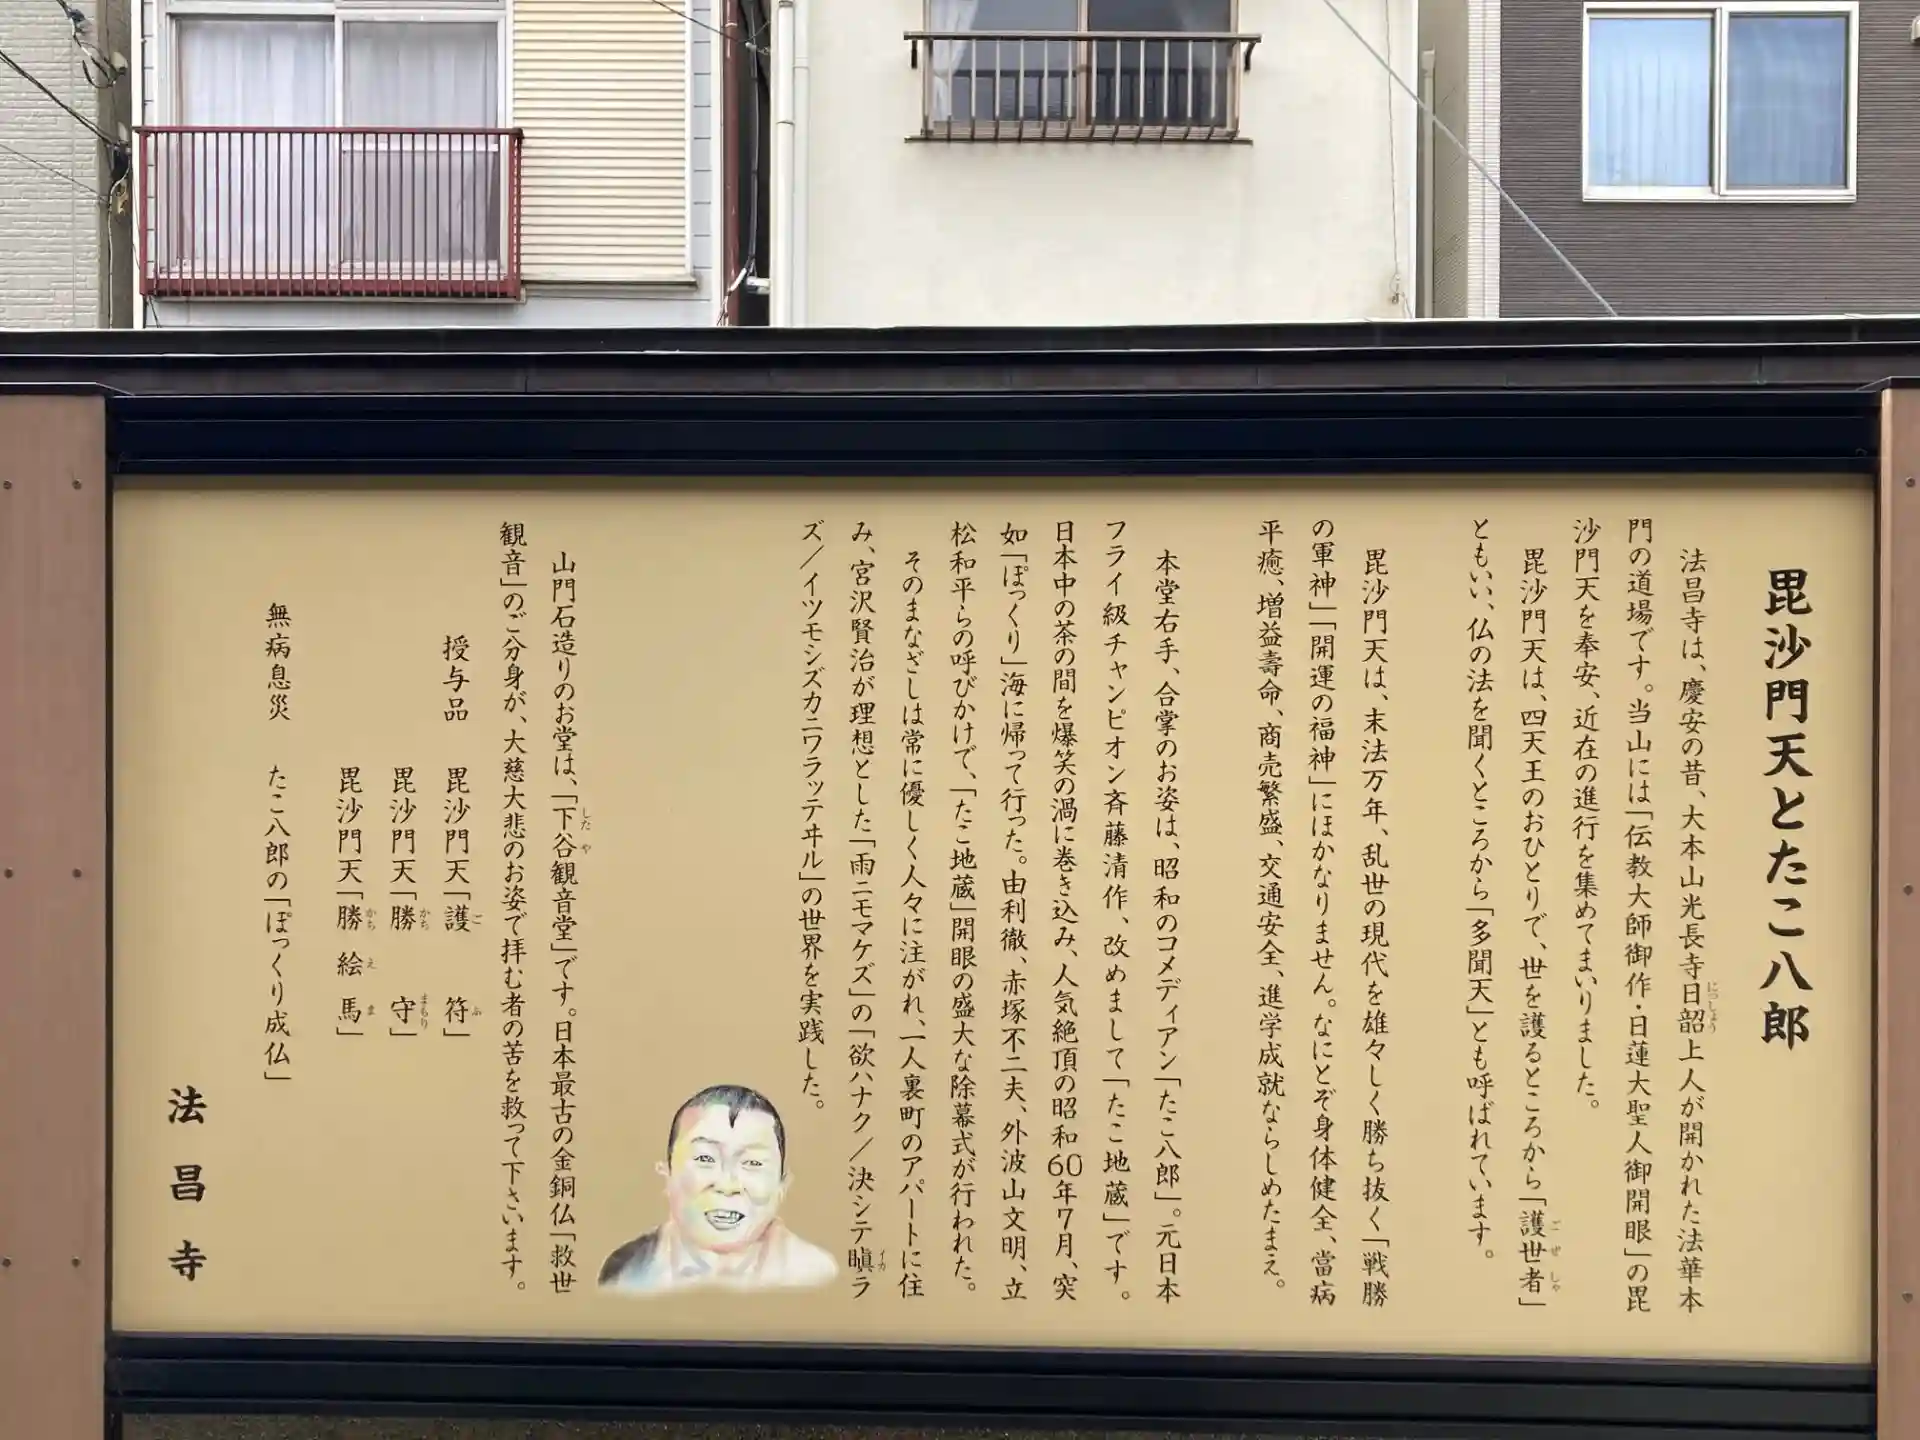 毘沙門天とたこ八郎
法昌寺は、慶安の昔、大本山光長寺日韶上人が開かれた法華本
にっしょう
門の道場です。当山には「伝教大師御作・日蓮大聖人御開眼」の毘
沙門天を奉安、近在の進行を集めてまいりました。
毘沙門天は、四天王のおひとりで、世を護るところから「護世者」
ごぜしゃ
ともい、仏の法を聞くところから「多聞天」とも呼ばれています。
毘沙門天は、末法万年、乱世の現代を雄々しく勝ち抜く「戦勝
の軍神」「開運の福神」にほかなりません。なにとぞ身体健全、當病
平癒、増益壽命、商売繁盛、交通安全、進学成就ならしめたまえ。
本堂右手、合掌のお姿は、昭和のコメディアン「たこ八郎」。元日本
フライ級チャンピオン斉藤清作、改めまして「たこ地蔵」です。
日本中の茶の間を爆笑の渦に巻き込み、人気絶頂の昭和60年7月、突
如「ぽっくり」海に帰って行った。由利徹、赤塚不二夫、外波山文明、立
松和平らの呼びかけで、「たこ地蔵」開眼の盛大な除幕式が行われた。
そのまなざしは常に優しく人々に注がれ、一人裏町のアパートに住
み、宮沢賢治が理想とした「雨ニモマケズ」の「欲ハナク／決シテ瞋ラ
イカ
ズ／イツモシズカニワラッテヰル」の世界を実践した。
山門石造りのお堂は、「下谷観音堂」です。日本最古の金銅仏「救世
したや
観音」のご分身が、大慈大悲のお姿で拝む者の苦を救って下さいます。
授与品 毘沙門天「護符」
ごふ
毘沙門天「勝守」
かちまもり
毘沙門天「勝絵馬」
かちえま
無病息災 たこ八郎の「ぽっくり成仏」
法昌寺